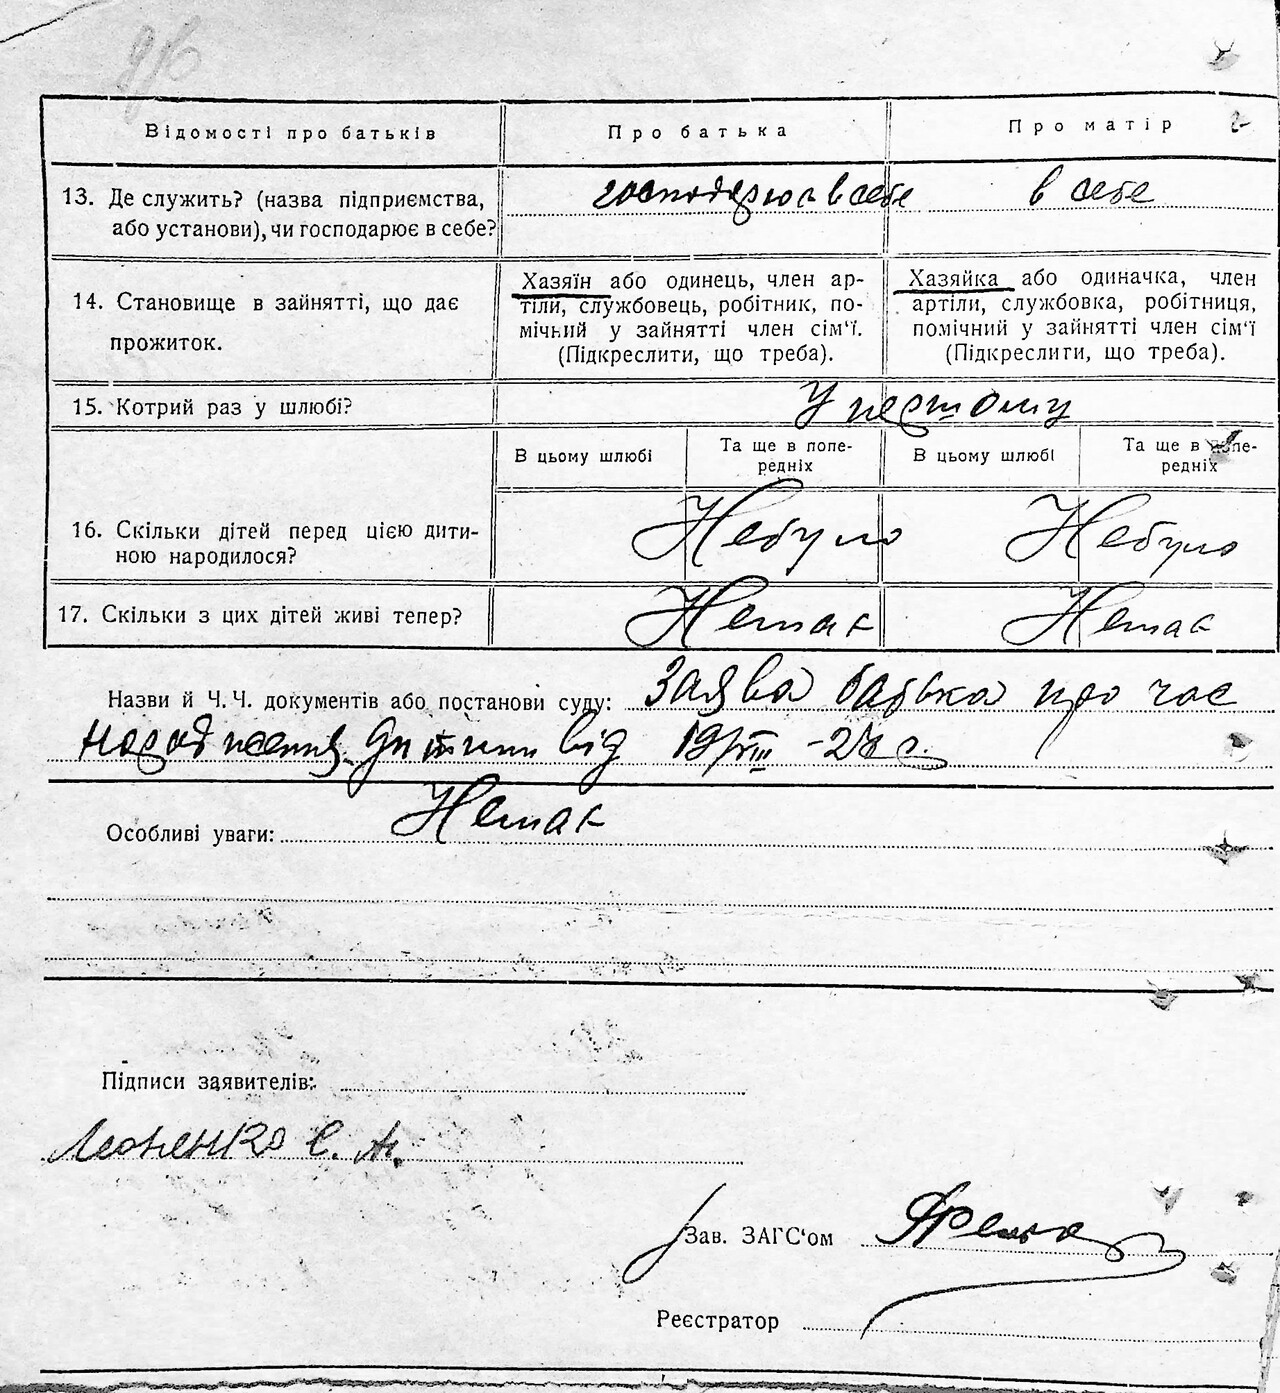 Відомості про батьків Про батька Про матір
13. Де служить? (назва підприємства, або установи), чи господарює в себе? господарює в себе в себе
14. Становище в зайнятті, що дає прожиток.
Хазяїн або одинець, член ар-
тіли, службовець, робітник, по-
мічний у зайнятті член сім'ї.
(Підкреслити, що треба).
Хазяйка або одиначка, член
артіли, службовка, робітниця,
помічний у зайнятті член сім'ї
(Підкреслити, що треба).
15. Котрий раз у шлюбі? У першому
В цьому шлюбі
Та ще в попе-
редніх
В цьому шлюбі
Та ще в попе-
редніх
16. Скільки дітей перед цією дити-
ною народилося? Небуло Небуло
17. Скільки з цих дітей живі тепер? Немає Немає
Назви й Ч.Ч. документів або постанови суду: Заява батька про час
народження дитини від 19/VIII
Особливі уваги: Немає
Підписи заявителів:
Леоненко С. А.
Зав. ЗАГС'ом
Реєстратор